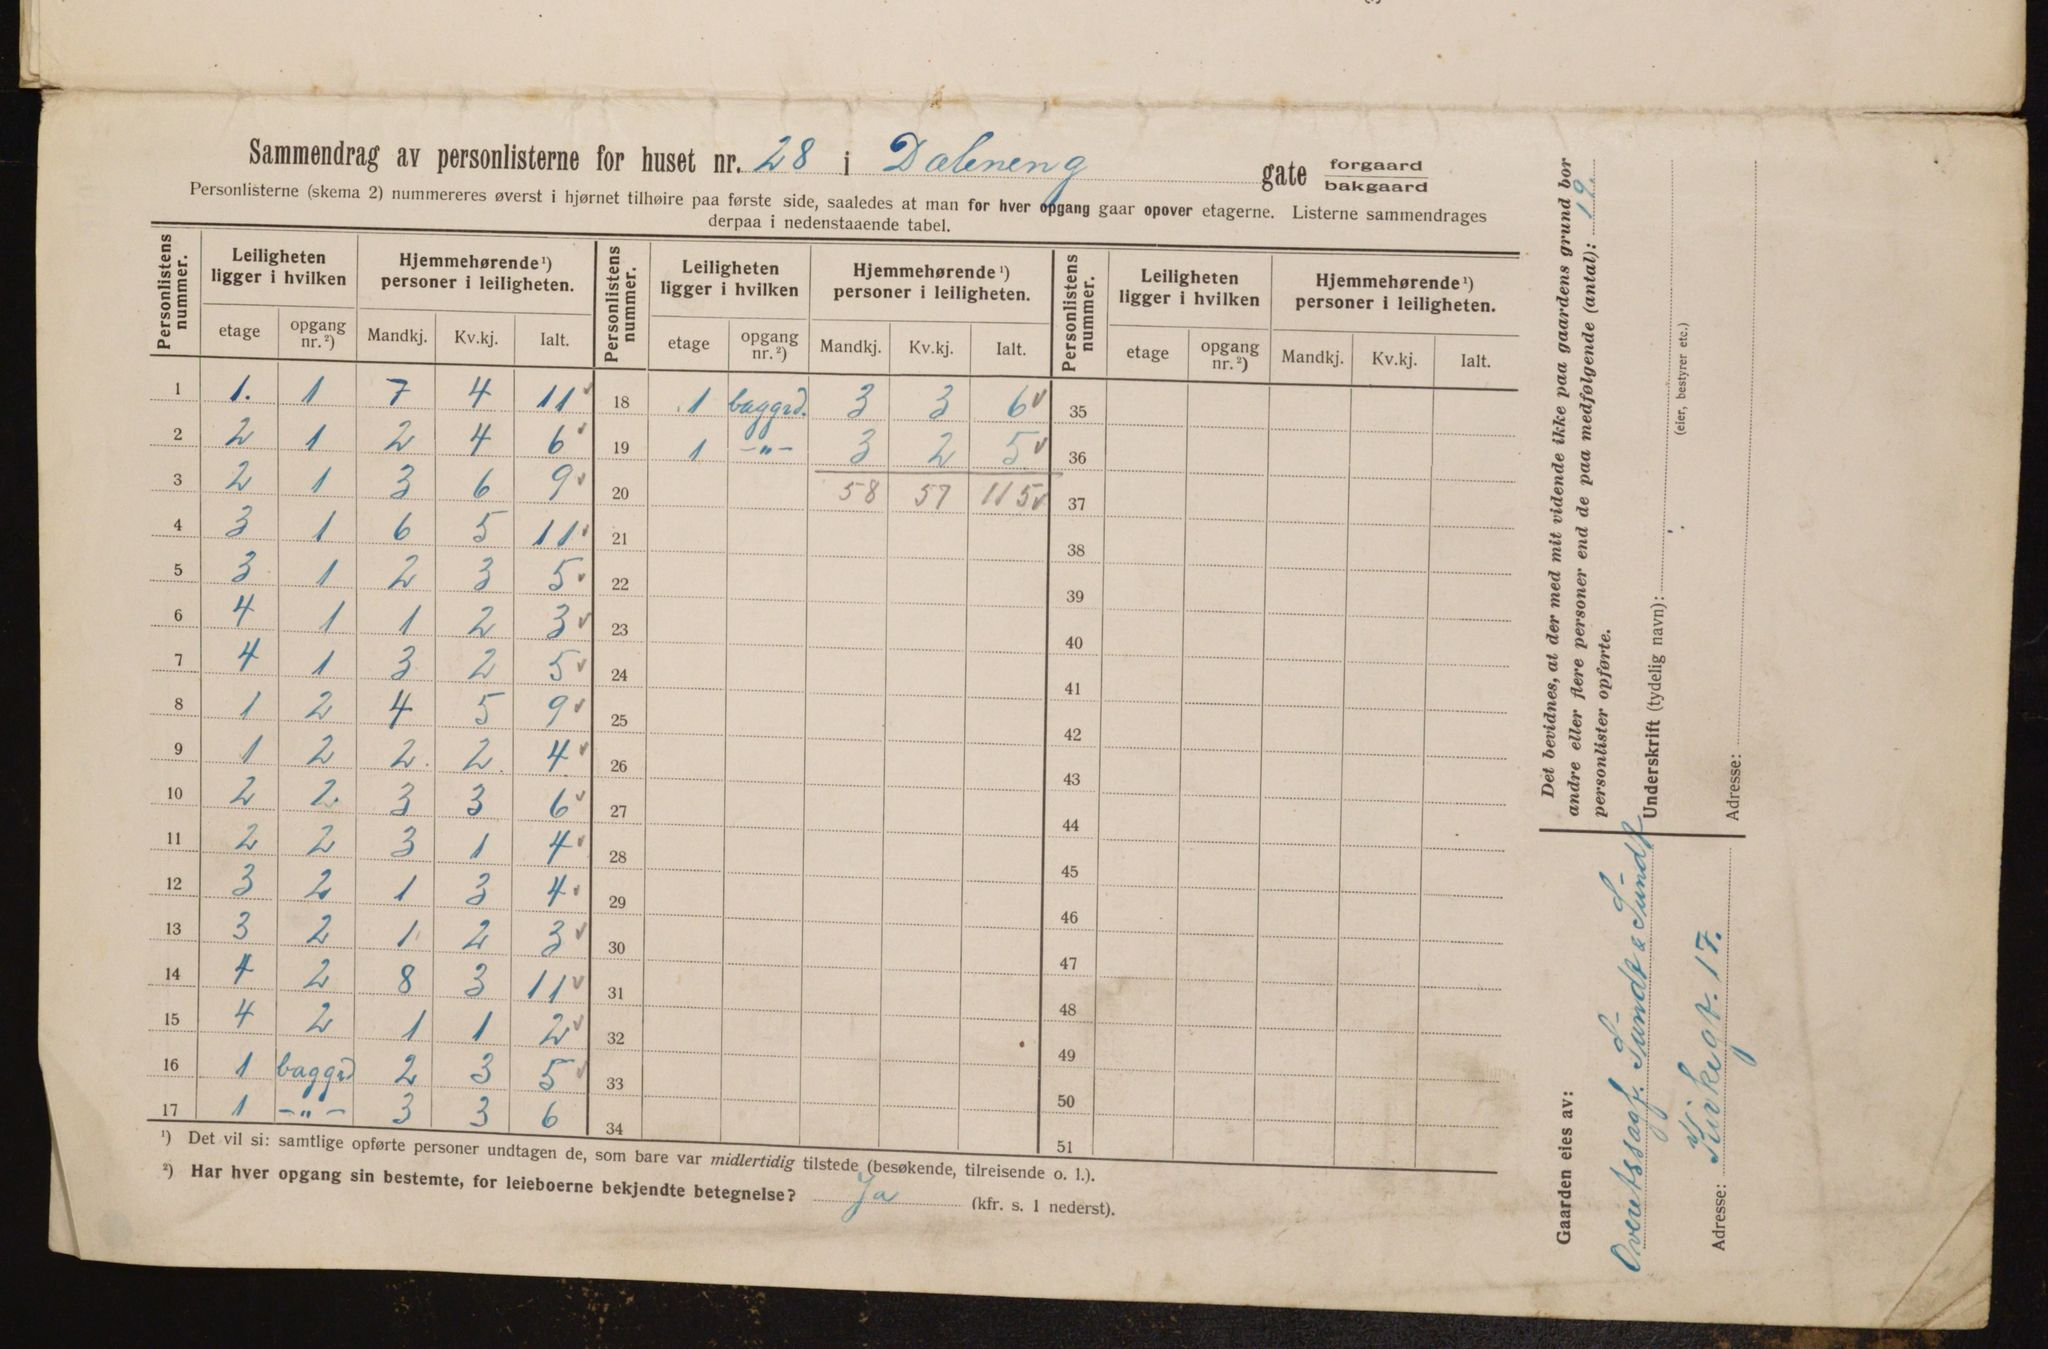 Sammendrag av personlisterne for huset nr. 28 i Daleneng gate forgaard
bakgaard
Personlisterne (skema 2) nummereres øverst i hjørnet tilhøire paa første side, saaledes at man for hver opgang gaar opover etagerne. Listerne sammendrages
derpaa i nedenstaaende tabel.
Personlistens nummer. Leiligheten ligger i hvilken Hjemmehørende ¹) personer i leiligheten. Personlistens nummer. Leiligheten ligger i hvilken Hjemmehørende ¹) personer i leiligheten. Personlistens nummer. Leiligheten ligger i hvilken Hjemmehørende ¹) personer i leiligheten.
etage opgang nr. ²) Mandkj. Kv.kj. Ialt. etage opgang nr. ²) Mandkj. Kv.kj. Ialt. etage opgang nr. ²) Mandkj. Kv.kj. Ialt.
1 1. 1 7 4 11 18 1 baggrd. 3 3 6 35
2 2 1 2 4 6 19 1 -„- 3 2 5 36
3 2 1 3 6 9 20 58 57 115 37
4 3 1 6 5 11 21 38
5 3 1 2 3 5 22 39
6 4 1 1 2 3 23 40
7 4 1 3 2 5 24 41
8 1 2 4 5 9 25 42
9 1 2 2 2 4 26 43
10 2 2 3 3 6 27 44
11 2 2 3 1 4 28 45
12 3 2 1 3 4 29 46
13 3 2 1 2 3 30 47
14 4 2 8 3 11 31 48
15 4 2 1 1 2 32 49
16 1 baggrd 2 3 5 33 50
17 1 -„- 3 3 6 34 51
¹) Det vil si: samtlige opførte personer undtagen de, som bare var midlertidig tilstede (besøkende, tilreisende o. l.).
²) Har hver opgang sin bestemte, for leieboerne bekjendte betegnelse? Ja (kfr. s. 1 nederst).
Det bevidnes, at der med mit vidende ikke paa gaardens grund bor
andre eller flere personer end de paa medfølgende (antal): 19.
personlister opførte.
Underskrift (tydelig navn):
(eier, bestyrer etc.)
Adresse:
Gaarden eies av:
Overetssagf. Sundt & Sundt
Adresse: Kirkegt. 17.